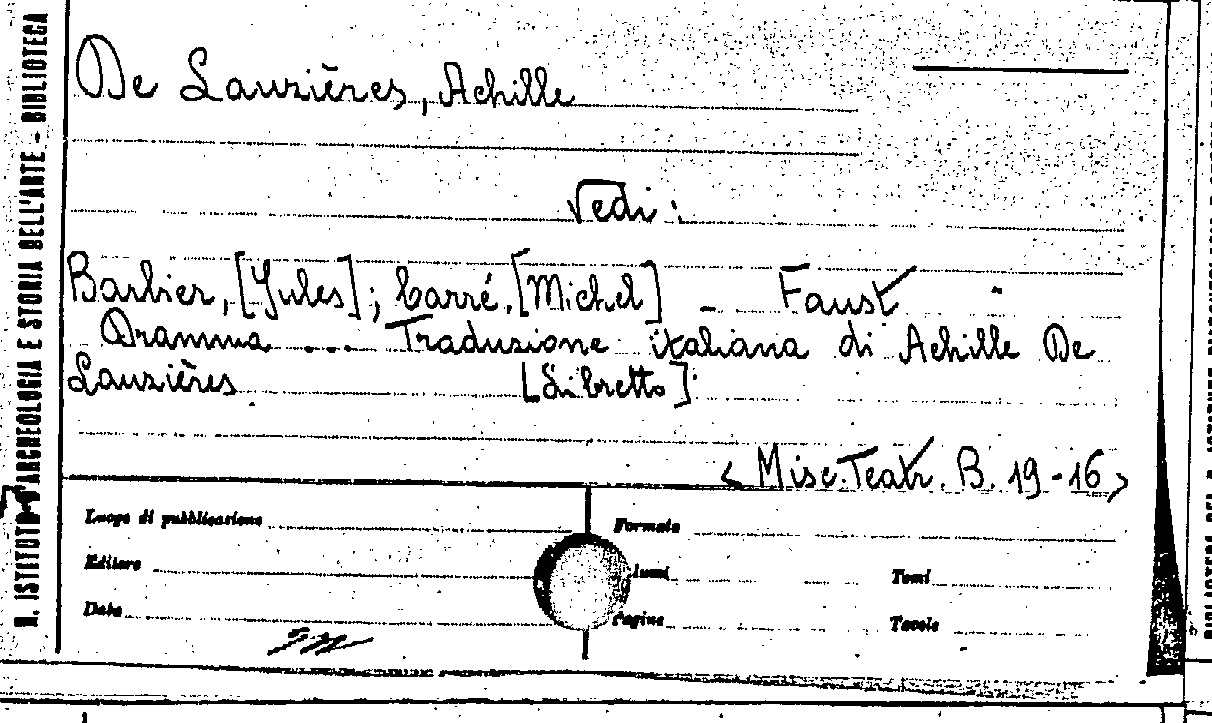 R. ISTITUTO D'ARCHEOLOGIA E STORIA DELL'ARTE - BIBLIOTECA
De Lauzières, Achille
Vedi:
Barbier, [Jules]; Carré, [Michel] - Faust
Dramma ... Traduzione italiana di Achille De
Lauzières [Libretto]
< Misc. Teatr. B. 19-16>
Luogo di pubblicazione
Formato
Editore
lumi
Tomi
Data
Pagine
Tavole